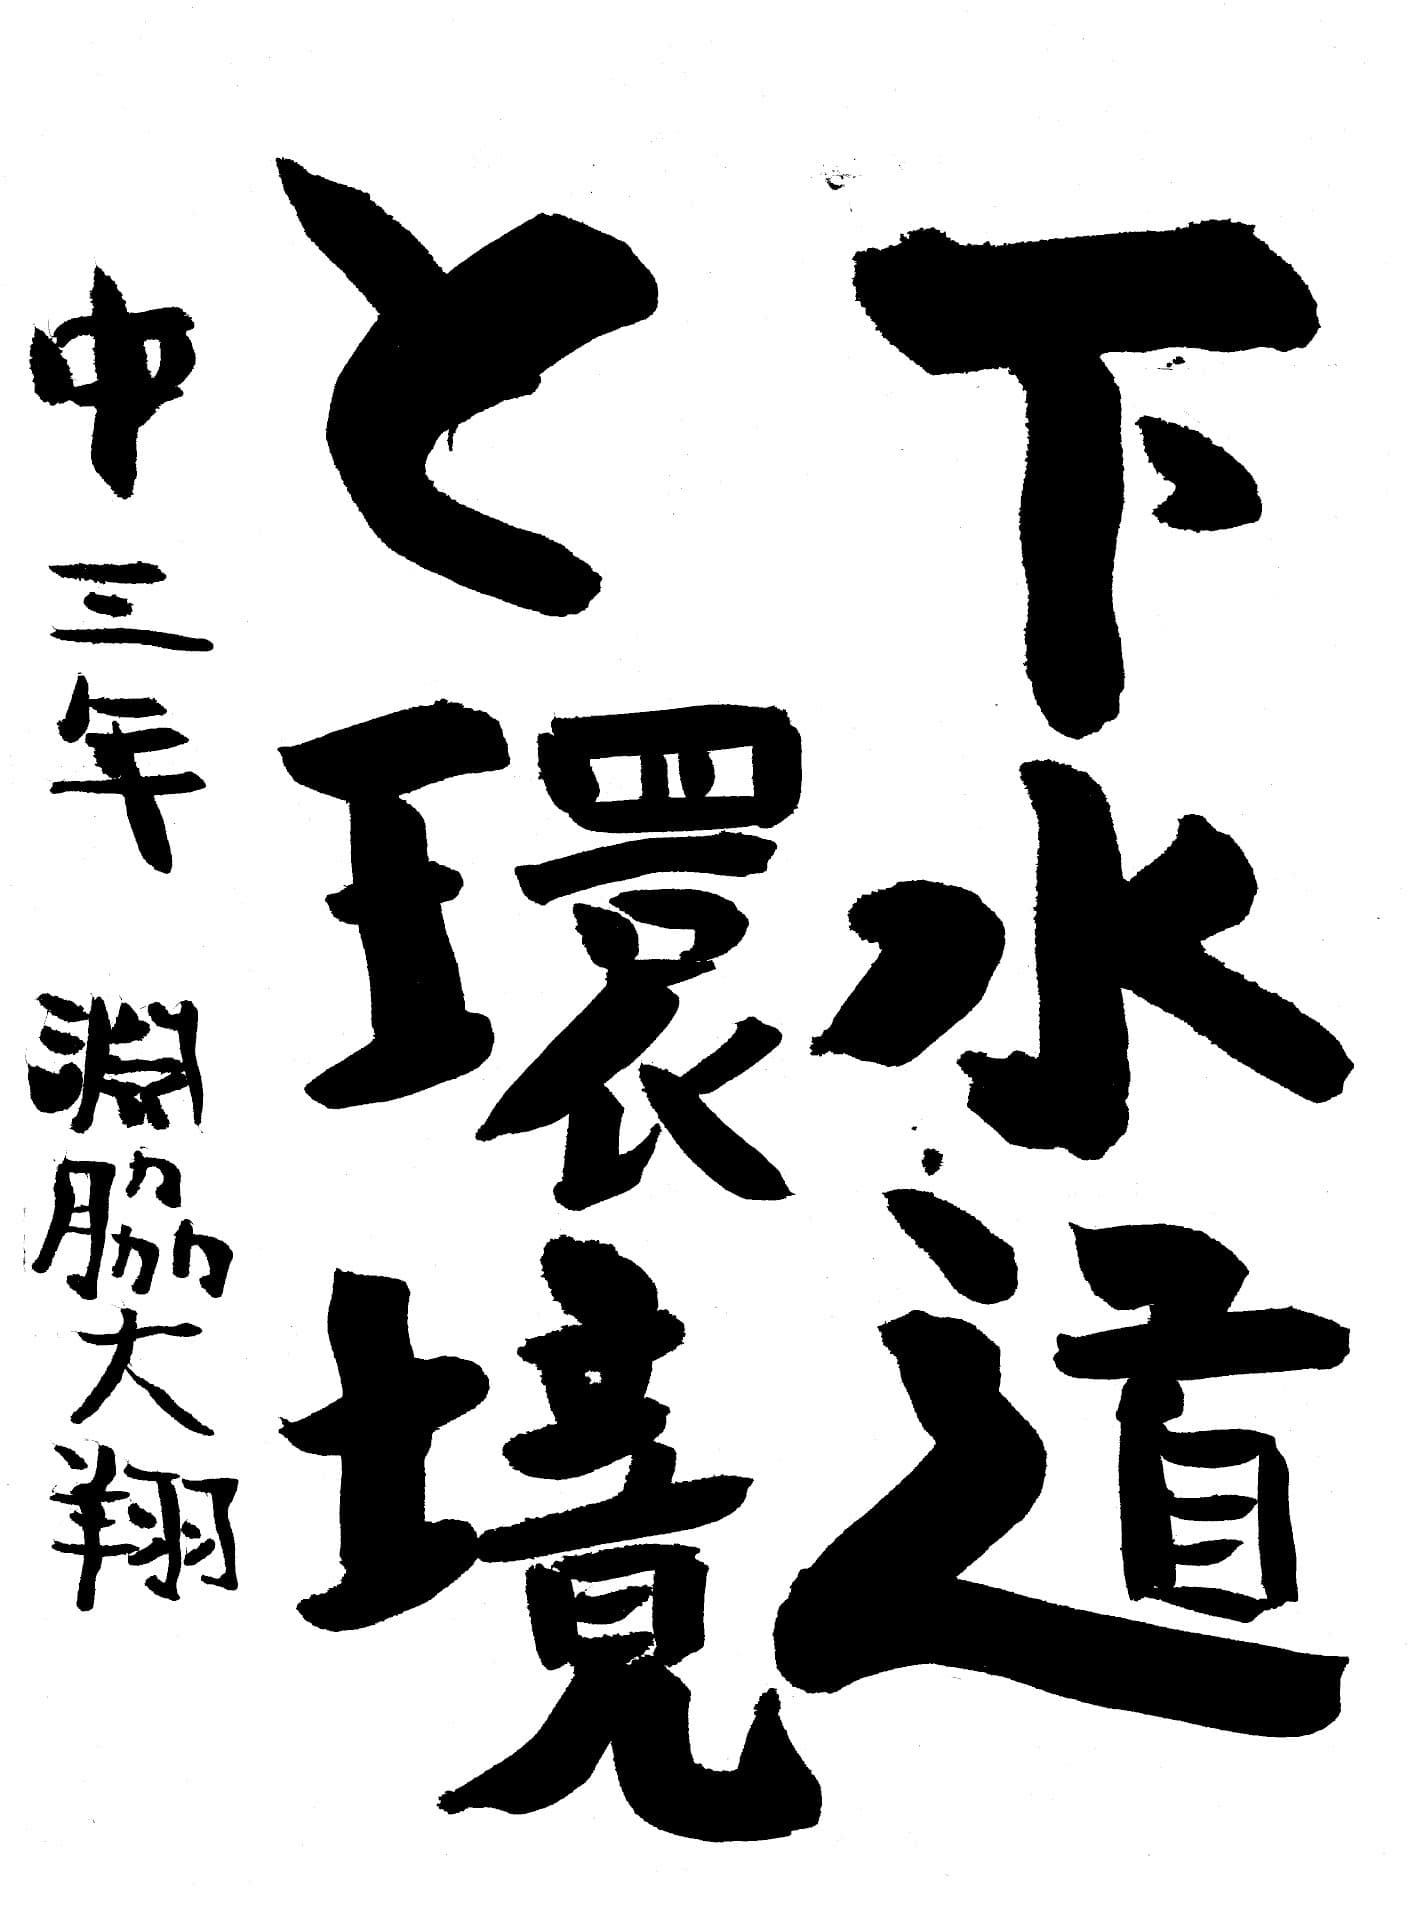 下水道
と環境
中三年 淵脇大翔